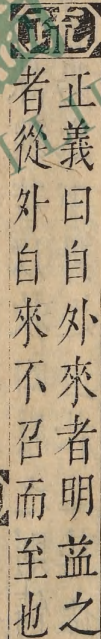 正義曰自外來者明益之
者從外自來不召而至也